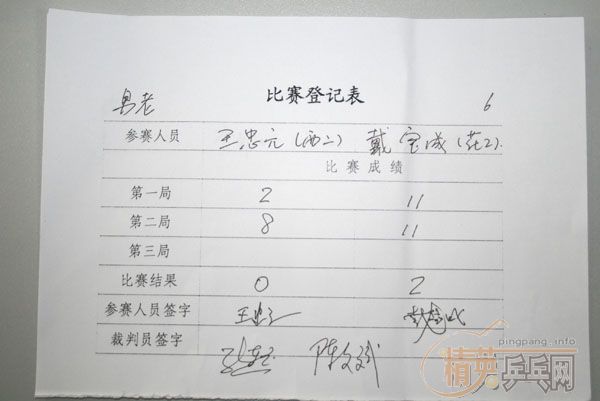 男老 比赛登记表 6
参赛人员 王忠元(西二) 戴宝成(花2)
比赛成绩
第一局 2 11
第二局 8 11
第三局
比赛结果 0 2
参赛人员签字
裁判员签字
pingpang.info
精英乒乓网